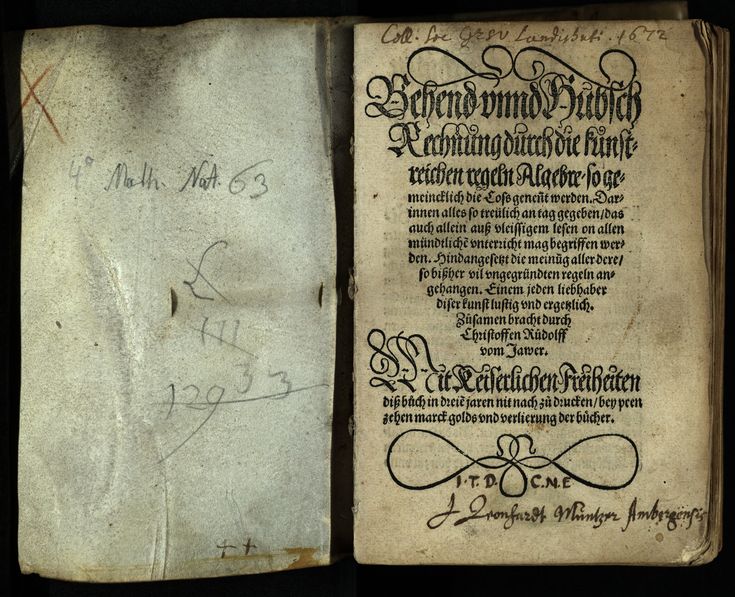 4° Math. Nat. 63
III
33
129
++
Coll. Soc. Jesu Landishuti. 1672
Behend vnnd Hubsch
Rechnung durch die kunst-
reichen regeln Algebre / so ge-
meincklich die Coss geneñt werden. Dar-
innen alles so treülich an tag gegeben / das
auch allein auß vleissigem lesen on allen
mündtlichẽ vnterricht mag begriffen wer-
den. Hindangesetzt die meinũg aller dere /
so bißher vil vngegründten regeln an-
gehangen. Einem jeden liebhaber
diser kunst lustig vnd ergetzlich.
Zůsamen bracht durch
Christoffen Růdolff
vom Jawer.
Mit Keiserlichen Freiheiten
diß bůch in dreiẽ jaren nit nach zů drucken / bey peen
zehen marck golds vnd verlierung der bücher.
I.T.D. C.N.E
Leonhardt Müntzer Ambergensis